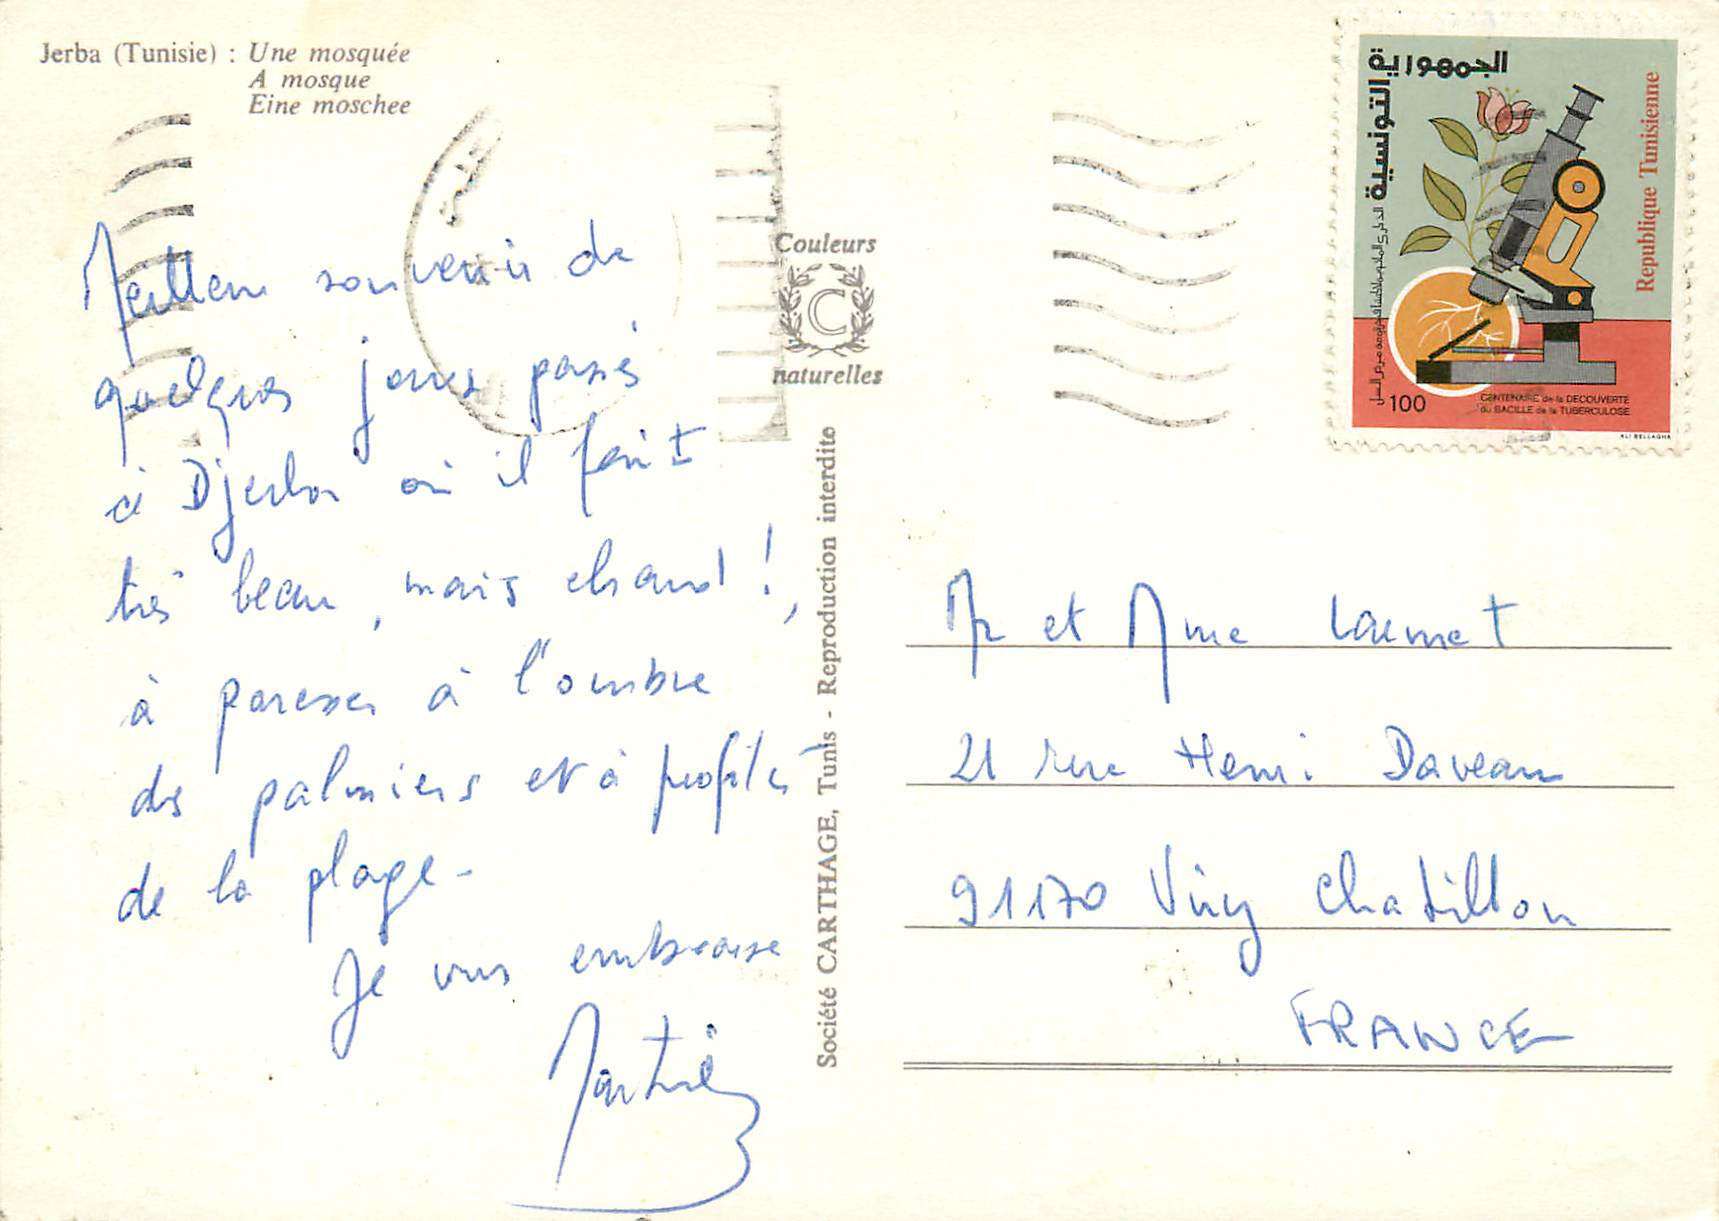 Jerba (Tunisie) : Une mosquée
A mosque
Eine moschee
Meilleur souvenir de
quelques jours passés
à Djerba où il fait
très beau, mais chaud !,
à paresser à l'ombre
des palmiers et à profiter
de la plage -
Je vous embrasse
Couleurs
C
naturelles
Société CARTHAGE, Tunis - Reproduction interdite
الجمهورية التونسية
Republique Tunisienne
100
CENTENAIRE de la DECOUVERTE
du BACILLE de la TUBERCULOSE
ALI BELLAGHA
Mr et Mme Laumet
21 rue Henri Daveau
91170 Viry Chatillon
FRANCE